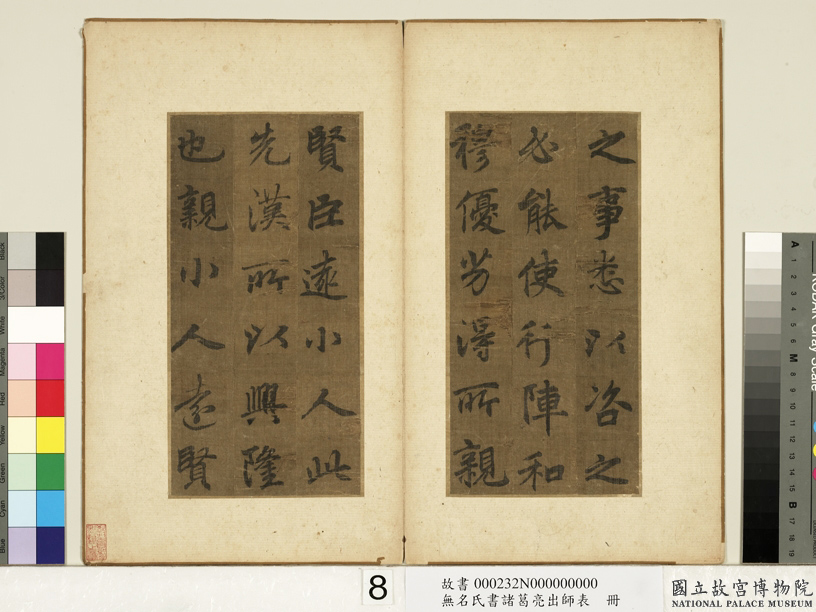 之事悉以咨之
必能使行陣和
穆優劣得所親
賢臣遠小人此
先漢所以興隆
也親小人遠賢
8
故書 000232N000000000
無名氏書諸葛亮出師表 冊
國立故宮博物院
NATIONAL PALACE MUSEUM
Black
3/Color
White
Magenta
Red
Yellow
Green
Cyan
Blue
KODAK Gray Scale
A 1 2 3 4 5 6 M 8 9 10 11 12 13 14 15 B 17 18 19